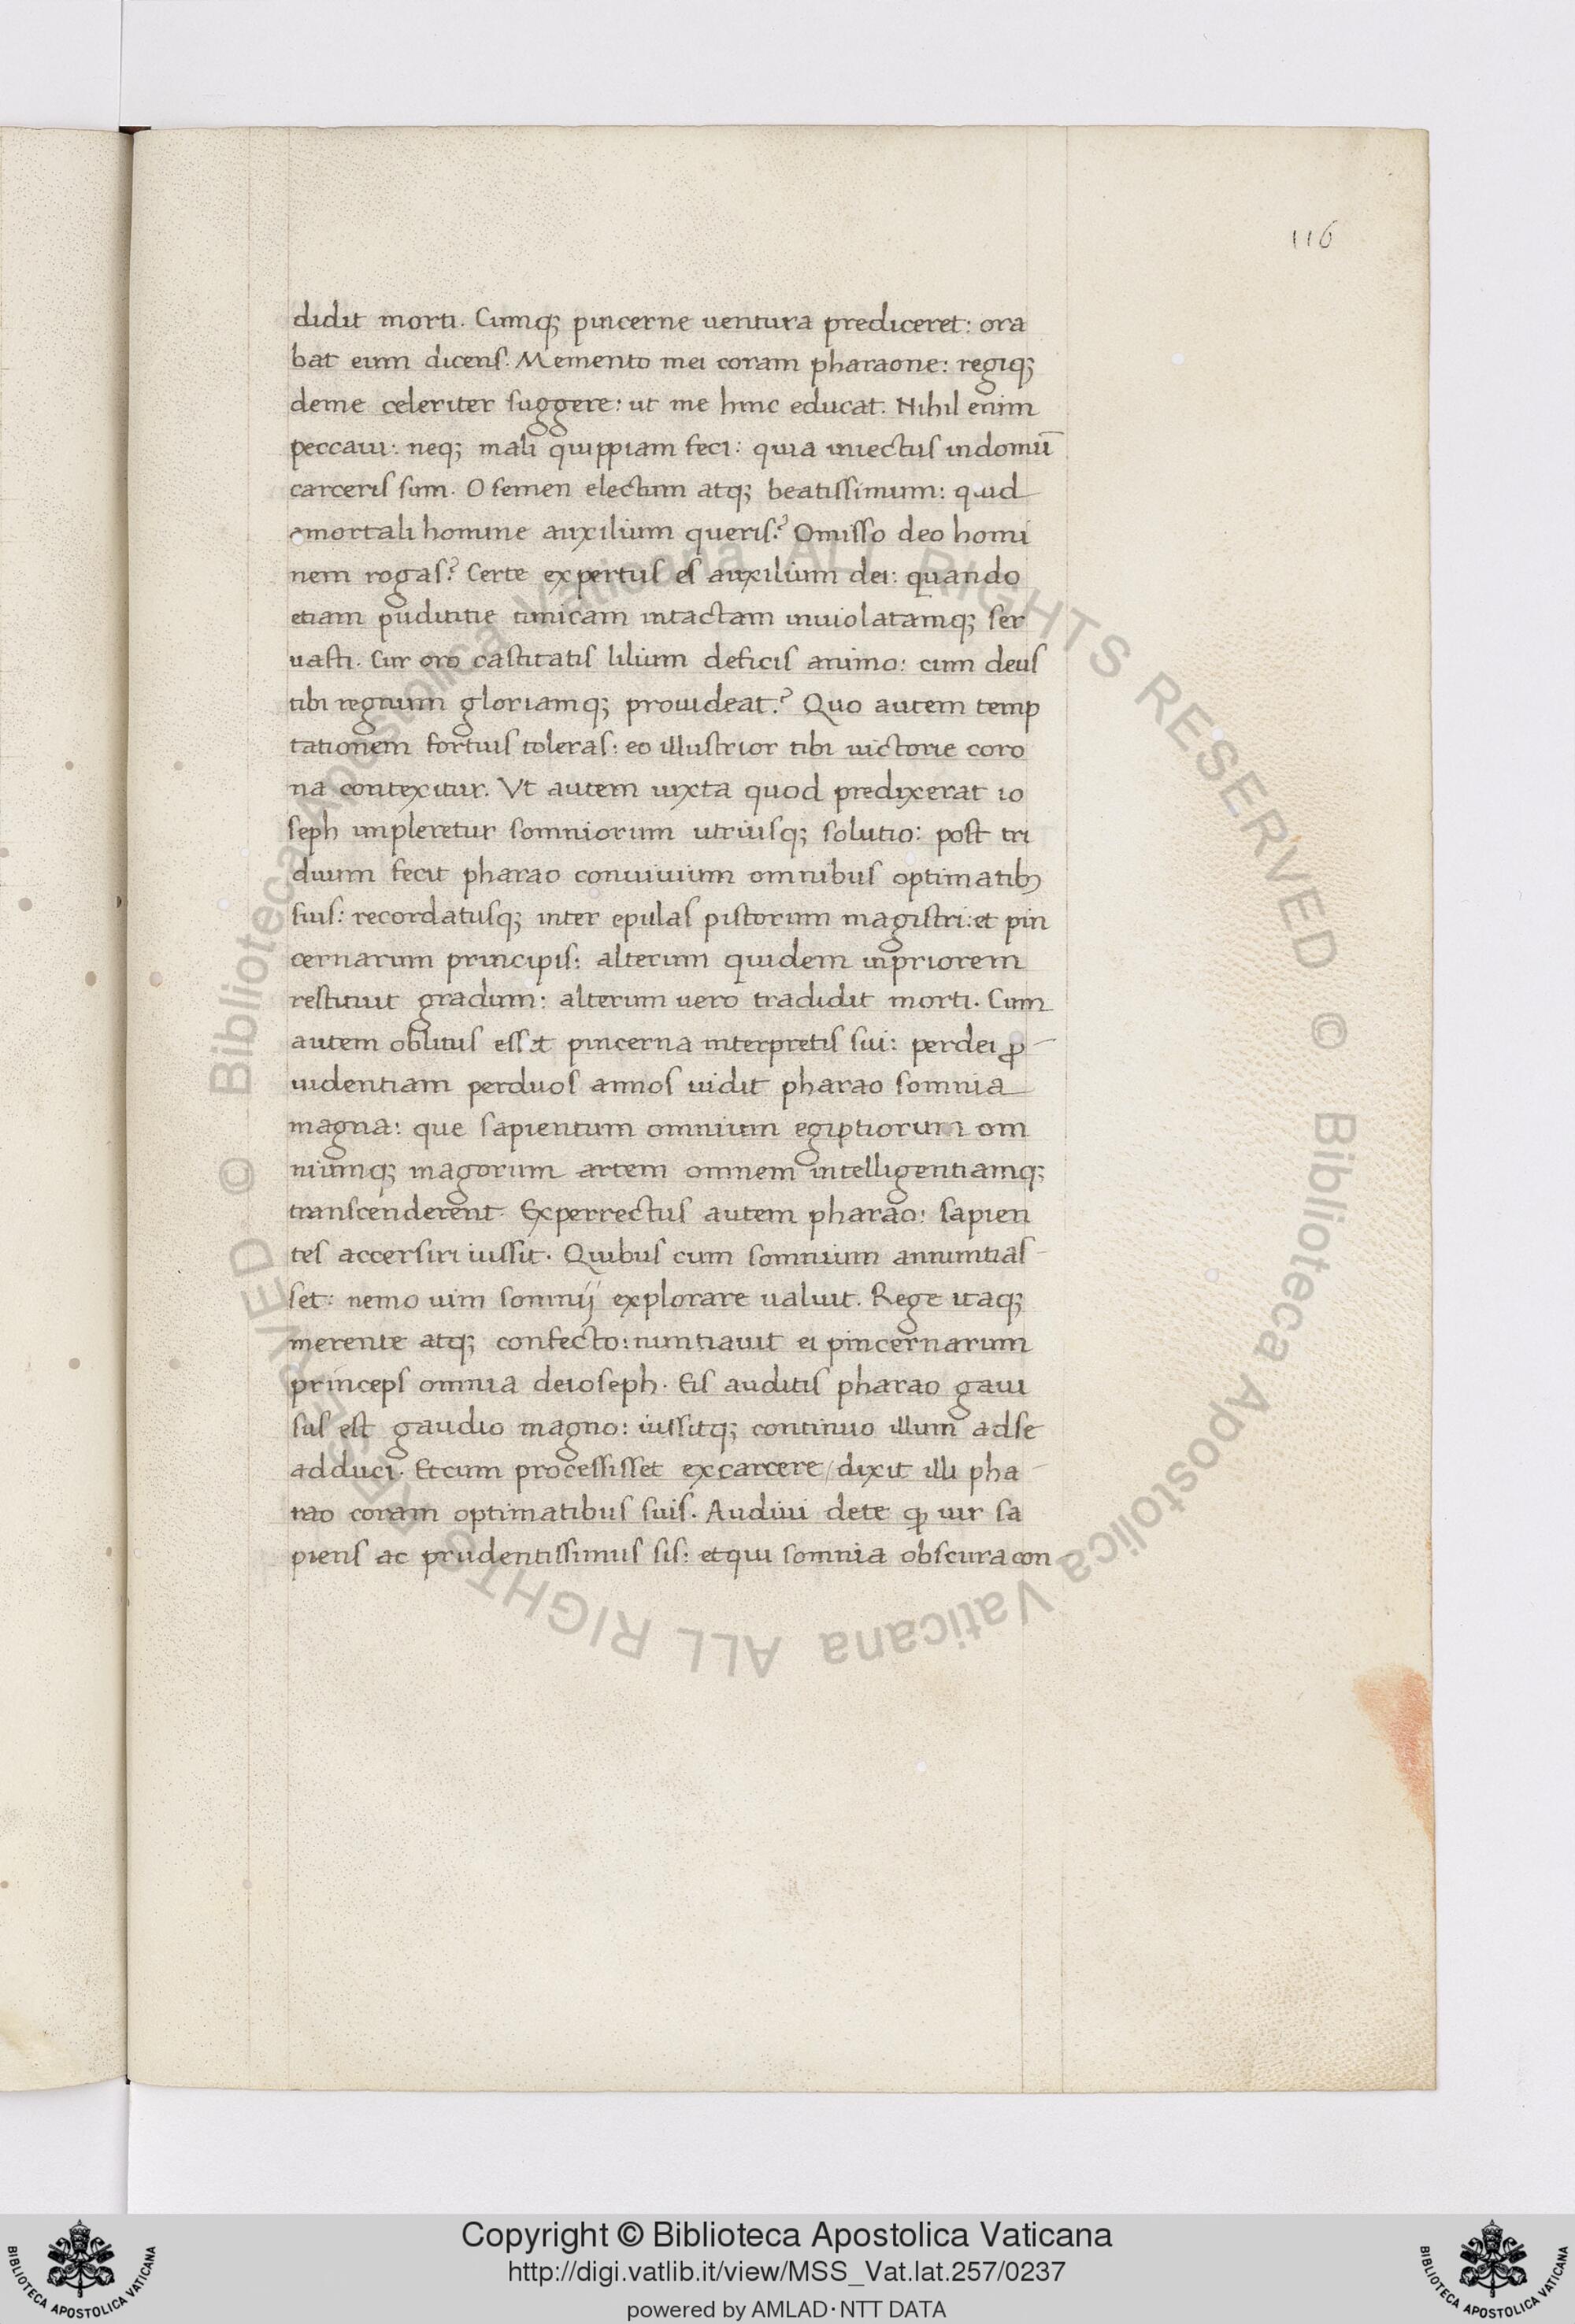 116
didit morti. Cumq; pincerne uentura prediceret: ora
bat eum dicens. Memento mei coram pharaone: regiq;
deme celeriter suggere: ut me hinc educat. Nihil enim
peccaui: neq; mali quippiam feci: quia iniectus in domū
carceris sum. O semen electum atq; beatissimum: quid
a mortali homine auxilium queris? Omisso deo homi
nem rogas? Certe expertus es auxilium dei: quando
etiam pudititie tunicam intactam inuiolatamq; ser
uasti. Cur oro castitatis lilium deficis animo: cum deus
tibi regnum gloriamq; prouideat? Quo autem temp
tationem fortius toleras: eo illustrior tibi uictorie coro
na contexitur. Vt autem iuxta quod predixerat io
seph impleretur somniorum utriusq; solutio: post tri
duum fecit pharao conuiuium omnibus optimatibȝ
suis: recordatusq; inter epulas pistorum magistri: et pin
cernarum principis: alterum quidem in priorem
restituit gradum: alterum uero tradidit morti. Cum
autem oblitus esset pincerna interpretis sui: per dei ꝓ
uidentiam per duos annos uidit pharao somnia
magna: que sapientum omnium egiptiorum om
niumq; magorum artem omnem intelligentiamq;
transcenderent. Experrectus autem pharao: sapien
tes accersiri iussit. Quibus cum somnium annuntias
set: nemo uim somnij explorare ualuit. Rege itaq;
merente atq; confecto: nuntiauit ei pincernarum
princeps omnia de ioseph. Eis auditis pharao gaui
sus est gaudio magno: iussitq; continuo illum ad se
adduci. Et cum processisset ex carcere / dixit illi pha
rao coram optimatibus suis. Audiui de te ꝙ uir sa
piens ac prudentissimus sis: et qui somnia obscura con
© Biblioteca Apostolica Vaticana ALL RIGHTS RESERVED © Biblioteca Apostolica Vaticana ALL RIGHTS RESERVED
Copyright © Biblioteca Apostolica Vaticana
http://digi.vatlib.it/view/MSS_Vat.lat.257/0237
powered by AMLAD·NTT DATA
BIBLIOTECA APOSTOLICA VATICANA
BIBLIOTECA APOSTOLICA VATICANA